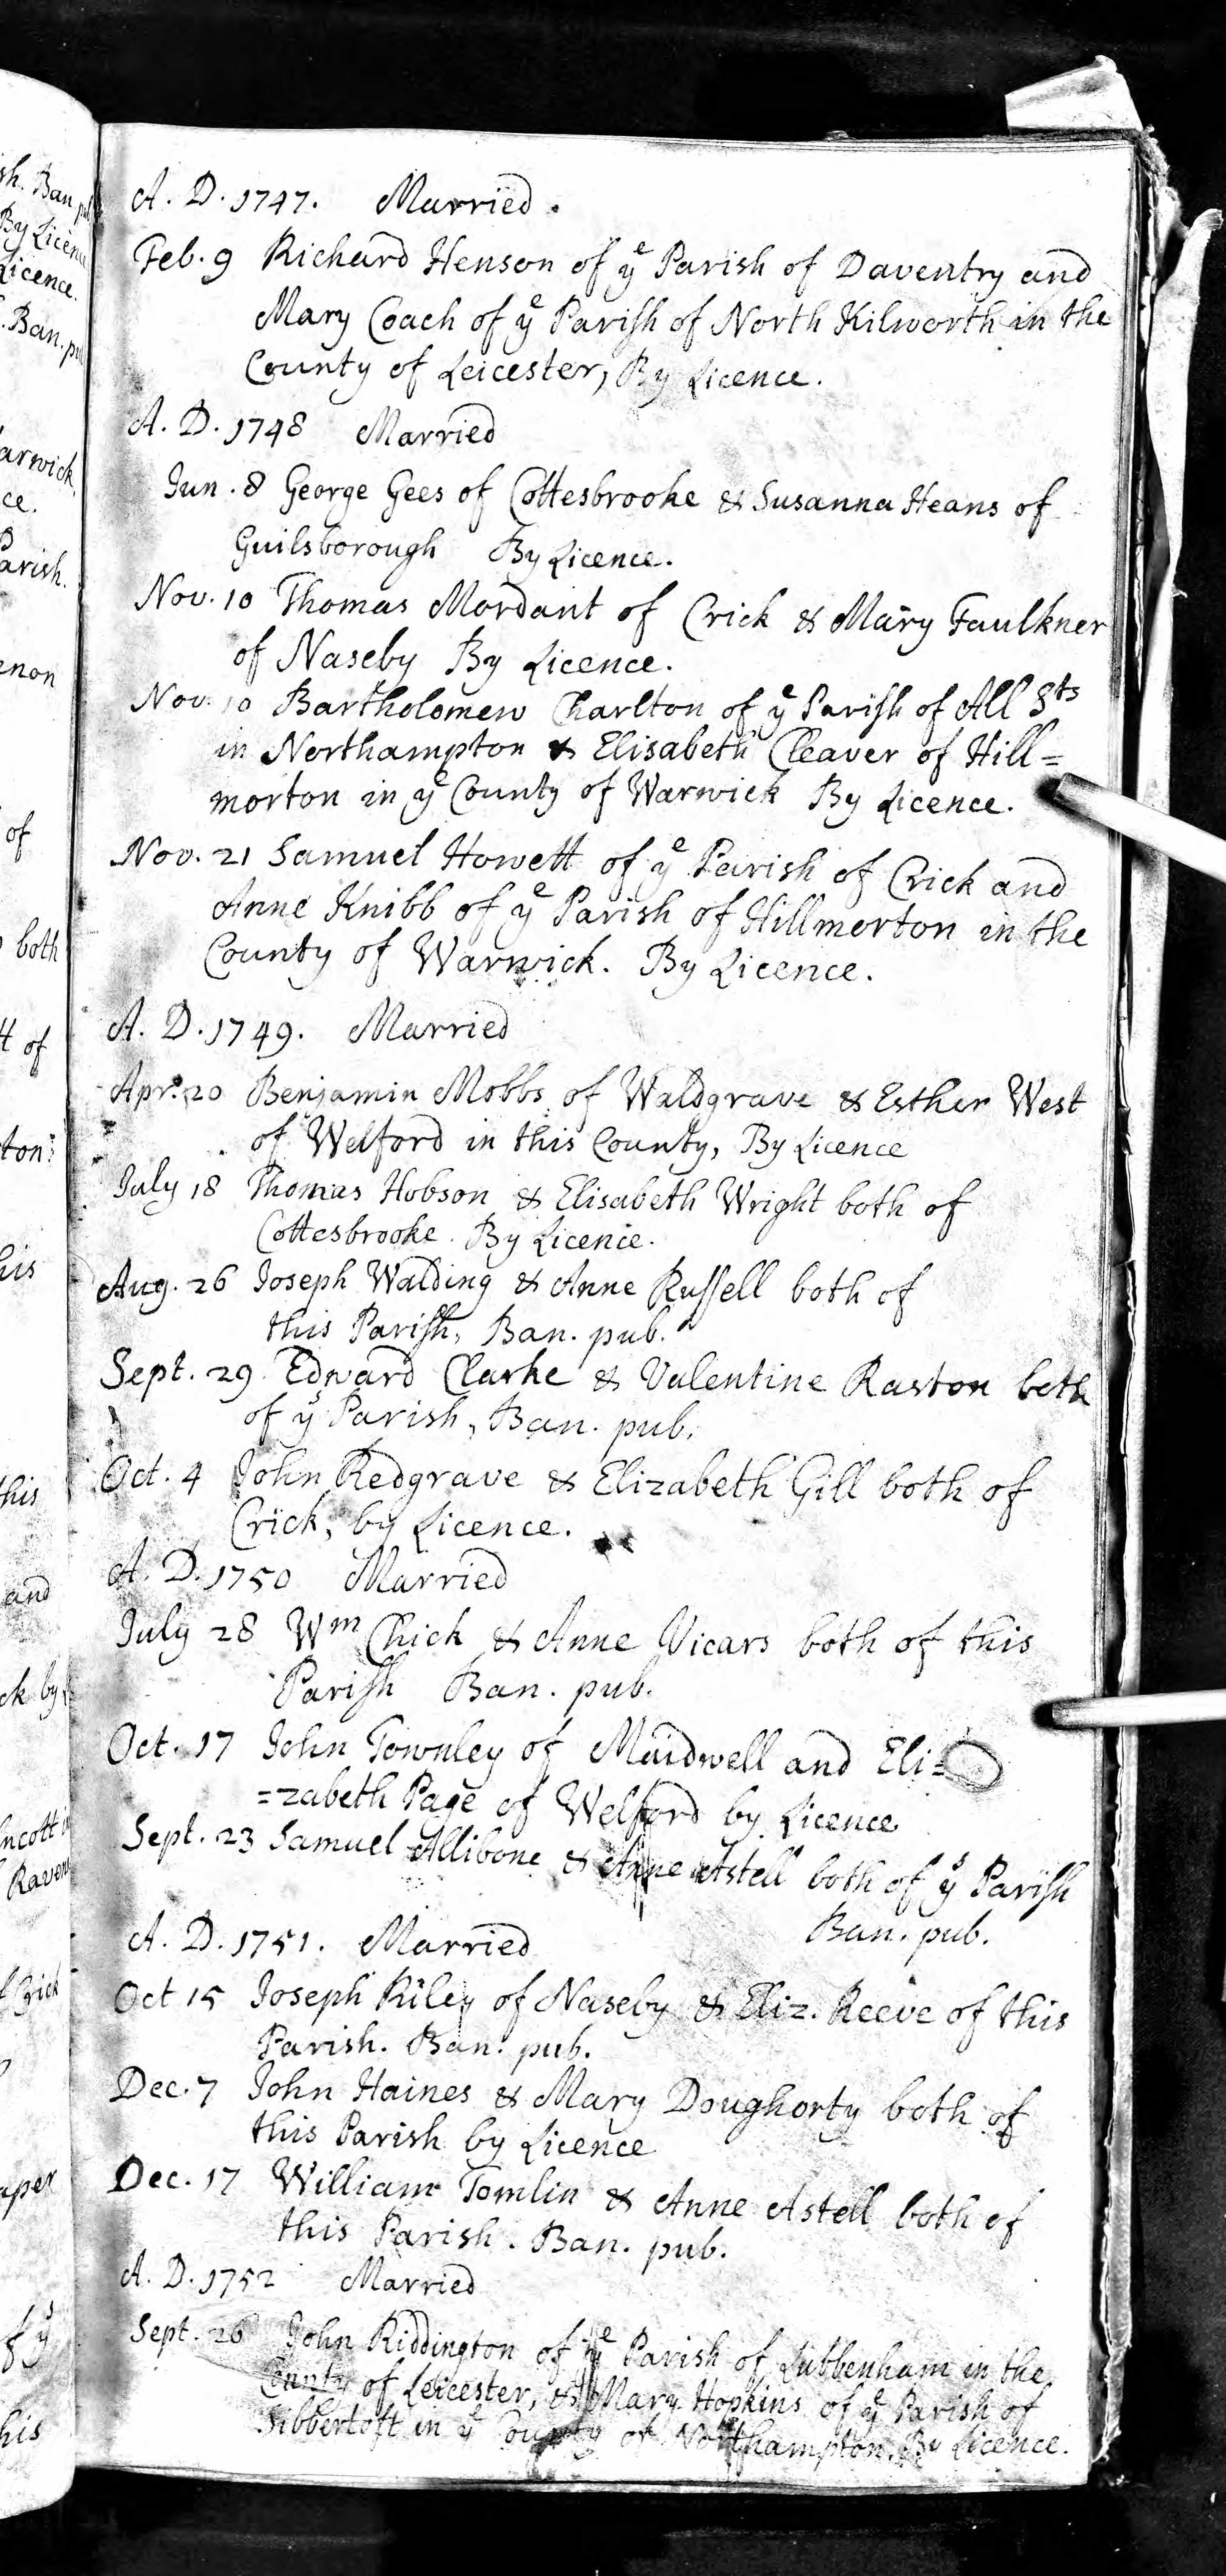 sh. Ban pu
By Licen
Licence.
. Ban. pu
arwick.
ce.
arish.
enon
of
both
tt of
ton
his
this
and
ck by
ncott
Raven
aper
his
A. D. 1747. Married.
Feb. 9 Richard Henson of yᵉ Parish of Daventry and
Mary Coach of yᵉ Parish of North Kilworth in the
County of Leicester, By Licence.
A. D. 1748 Married
Jun. 8 George Gees of Cottesbrooke & Susanna Heans of
Guilsborough By Licence.
Nov. 10 Thomas Mordant of Crick & Mary Faulkner
of Naseby By Licence.
Nov. 10 Bartholomew Charlton of yᵉ Parish of All Sᵗˢ
in Northampton & Elisabeth Cleaver of Hill=
morton in yᵉ County of Warwick By Licence.
Nov. 21 Samuel Howett of yᵉ Parish of Crick and
Anne Knibb of yᵉ Parish of Hillmorton in the
County of Warwick. By Licence.
A. D. 1749. Married
Apr. 20 Benjamin Mobbs of Waldgrave & Esther West
of Welford in this County, By Licence
July 18 Thomas Hobson & Elisabeth Wright both of
Cottesbrooke. By Licence.
Aug. 26 Joseph Walding & Anne Russell both of
this Parish, Ban. pub.
Sept. 29 Edward Clarke & Valentine Raston both
of yˢ Parish, Ban. pub.
Oct. 4 John Redgrave & Elizabeth Gill both of
Crick, by Licence.
A. D. 1750 Married
July 28 Wᵐ Chick & Anne Vicars both of this
Parish Ban. pub.
Oct. 17 John Townley of Maidwell and Eli=
=zabeth Page of Welford by Licence
Sept. 23 Samuel Allibone & Anne Astell both of yˢ Parish
Ban. pub.
A. D. 1751. Married
Oct 15 Joseph Riley of Naseby & Eliz. Reeve of this
Parish. Ban. pub.
Dec. 7 John Haines & Mary Doughorty both of
this Parish by Licence
Dec. 17 William Tomlin & Anne Astell both of
this Parish. Ban. pub.
A. D. 1752 Married
Sept. 26 John Riddington of yᵉ Parish of Lubbenham in the
County of Leicester, & Mary Hopkins of yᵉ Parish of
Sibbertoft in yᵉ County of Northampton. By Licence.